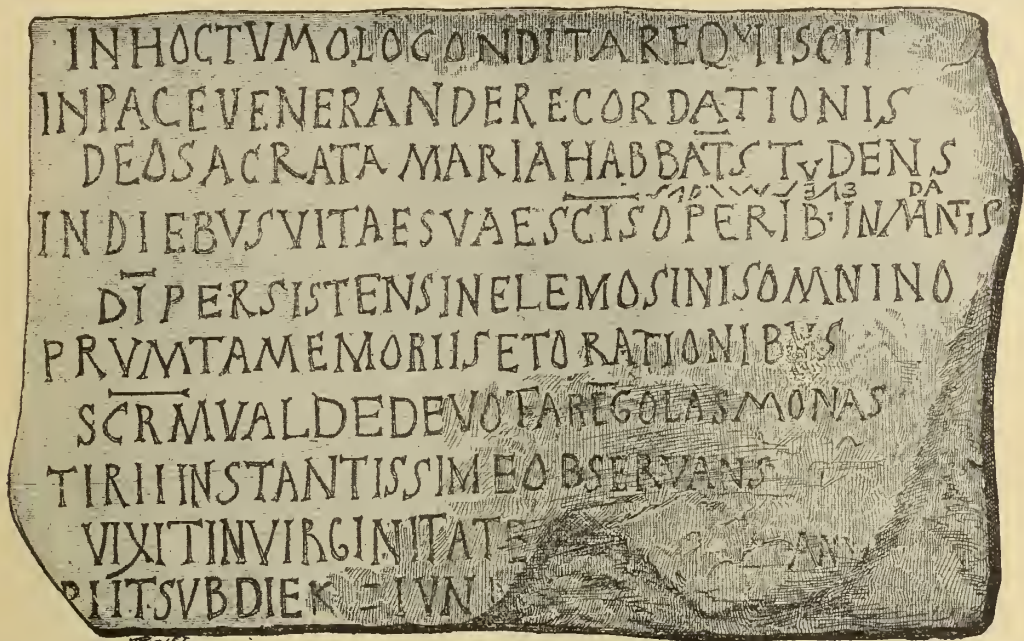 INHOCTVMOLOCONDITAREQVIISCIT
INPACEVENERANDERECORDATIONIS
DEOSACRATAMARIAHABBATSTVDENS
DA
INDIEBVSVITAESVAESCISOPERIB·INMANTIS
DIPERSISTENSINELEMOSINISOMNINO
PRVMTAMEMORIISETORATIONIBVS
SCRMVALDEDEVOTAREGOLASMONAS
TIRIIINSTANTISSIMEOBSERVANS
VIXITINVIRGINITATE
IITSVBDIEK = IVN